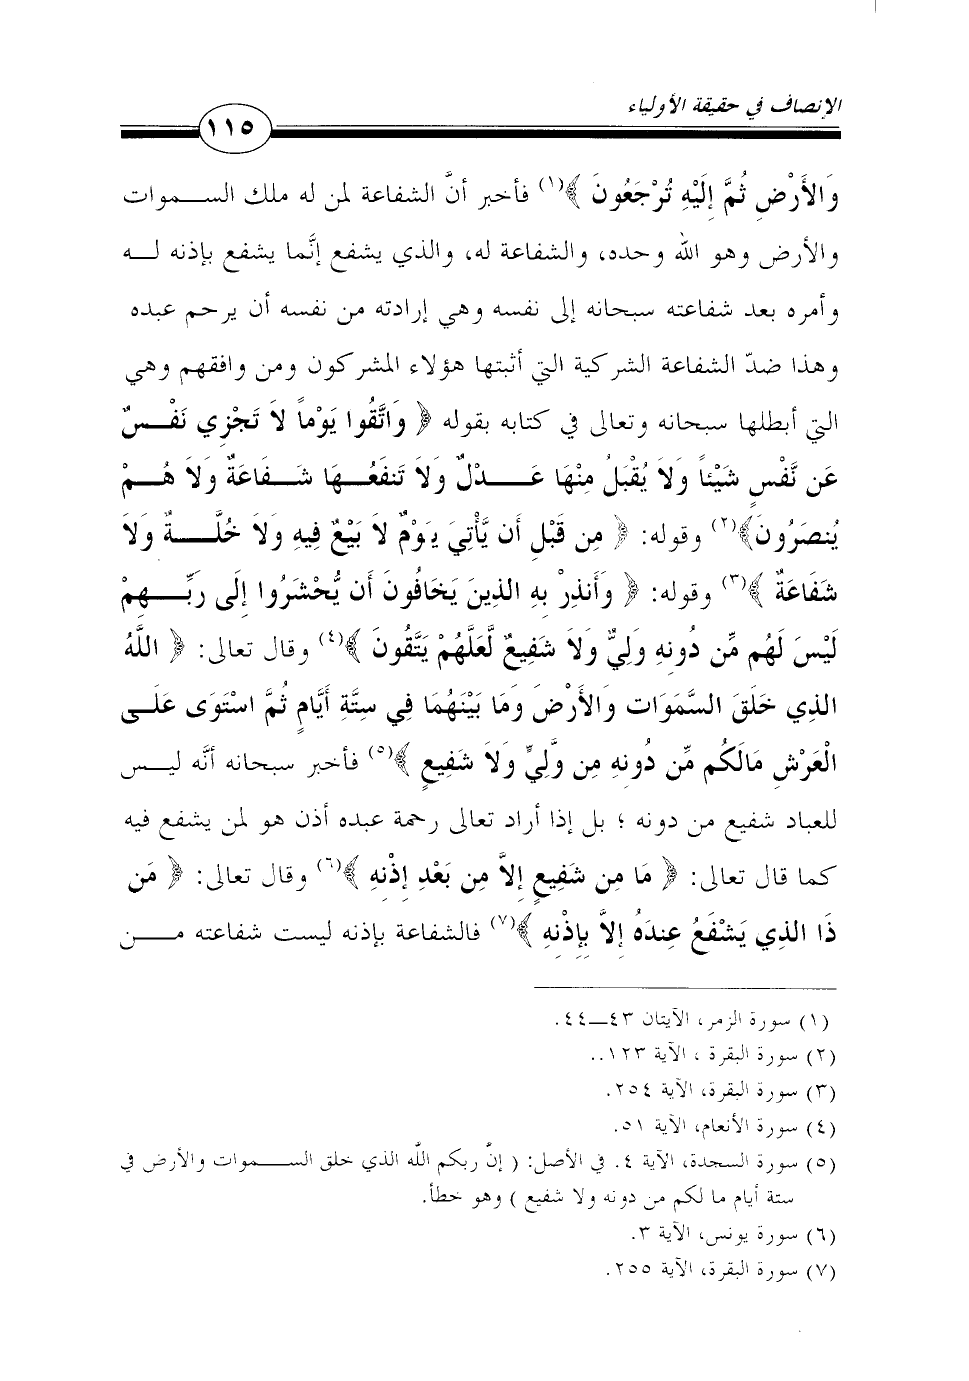 الإنصاف في حقيقة الأولياء
١١٥
وَالأَرْضِ ثُمَّ إِلَيْهِ تُرْجَعُونَ ﴾(١) فأخبر أنَّ الشفاعة لمن له ملك الســموات
والأرض وهو الله وحده، والشفاعة له، والذي يشفع إنَّما يشفع بإذنه لـــه
وأمره بعد شفاعته سبحانه إلى نفسه وهي إرادته من نفسه أن يرحم عبده
وهذا ضدّ الشفاعة الشركية التي أثبتها هؤلاء المشركون ومن وافقهم وهي
التي أبطلها سبحانه وتعالى في كتابه بقوله ﴿ وَاتَّقُوا يَوْماً لاَ تَجْزِي نَفْــسٌ
عَن نَّفْسٍ شَيْئاً وَلاَ يُقْبَلُ مِنْهَا عَـــدْلٌ وَلاَ تَنفَعُــهَا شَــفَاعَةٌ وَلاَ هُــمْ
يُنصَرُونَ﴾(٢) وقوله: ﴿ مِن قَبْلِ أَن يَأْتِيَ يَوْمٌ لاَ بَيْعٌ فِيهِ وَلاَ خُلَّـــةٌ وَلاَ
شَفَاعَةٌ ﴾(٣) وقوله: ﴿ وَأَنذِرْ بِهِ الذِينَ يَخَافُونَ أَن يُحْشَرُوا إِلَى رَبِّـــهِمْ
لَيْسَ لَهُم مِّن دُونِهِ وَلِيٌّ وَلاَ شَفِيعٌ لَعَلَّهُمْ يَتَّقُونَ ﴾(٤) وقال تعالى: ﴿ اللَّهُ
الذِي خَلَقَ السَّمَوَات وَالأَرْضَ وَمَا بَيْنَهُمَا فِي سِتَّةِ أَيَّامٍ ثُمَّ اسْتَوَى عَلَــى
الْعَرْشِ مَالَكُم مِّن دُونِهِ مِن وَلِيٍّ وَلاَ شَفِيعٍ ﴾(٥) فأخبر سبحانه أنَّه ليــس
للعباد شفيع من دونه ؛ بل إذا أراد تعالى رحمة عبده أذن هو لمن يشفع فيه
كما قال تعالى: ﴿ مَا مِن شَفِيعٍ إلاَّ مِن بَعْدِ إذْنِهِ ﴾(٦) وقال تعالى: ﴿ مَن
ذَا الذِي يَشْفَعُ عِندَهُ إلاَّ بِإِذْنِهِ ﴾(٧) فالشفاعة بإذنه ليست شفاعته مـــن
(١) سورة الزمر، الآيتان ٤٣ــ٤٤.
(٢) سورة البقرة ، الآية ١٢٣..
(٣) سورة البقرة، الآية ٢٥٤.
(٤) سورة الأنعام، الآية ٥١.
(٥) سورة السجدة، الآية ٤. في الأصل: ( إنَّ ربكم الله الذي خلق الســموات والأرض في
ستة أيام ما لكم من دونه ولا شفيع ) وهو خطأ.
(٦) سورة يونس، الآية ٣.
(٧) سورة البقرة، الآية ٢٥٥.